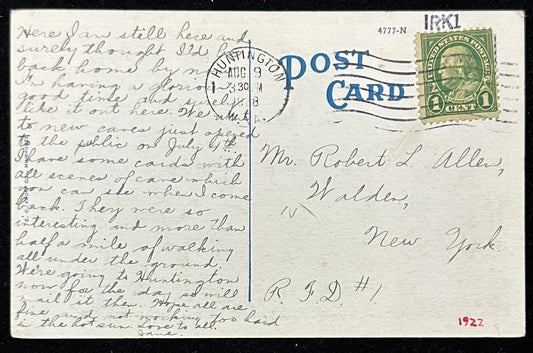 Here I am still here and
surely thought I'd be
back home by now
I'm having a glorious
good time and surely
like it out here. We went
to new caves just opened
to the public on July 4th.
I have some cards with
all scenes of cave which
you can see when I come
back. They were so
interesting and more than
half a mile of walking
all under the ground.
We're going to Huntington
now for the day so will
mail it then. Hope all are
fine and not working too hard
in the hot sun. Love to all.
Jane.
4777-N
POST
CARD
HUNTINGTON
AUG 9
330 M
IRK1
UNITED STATES POSTAGE
1 CENT 1
Mr. Robert L. Allen,
Walden,
New York.
R. F. D. #1.
1922